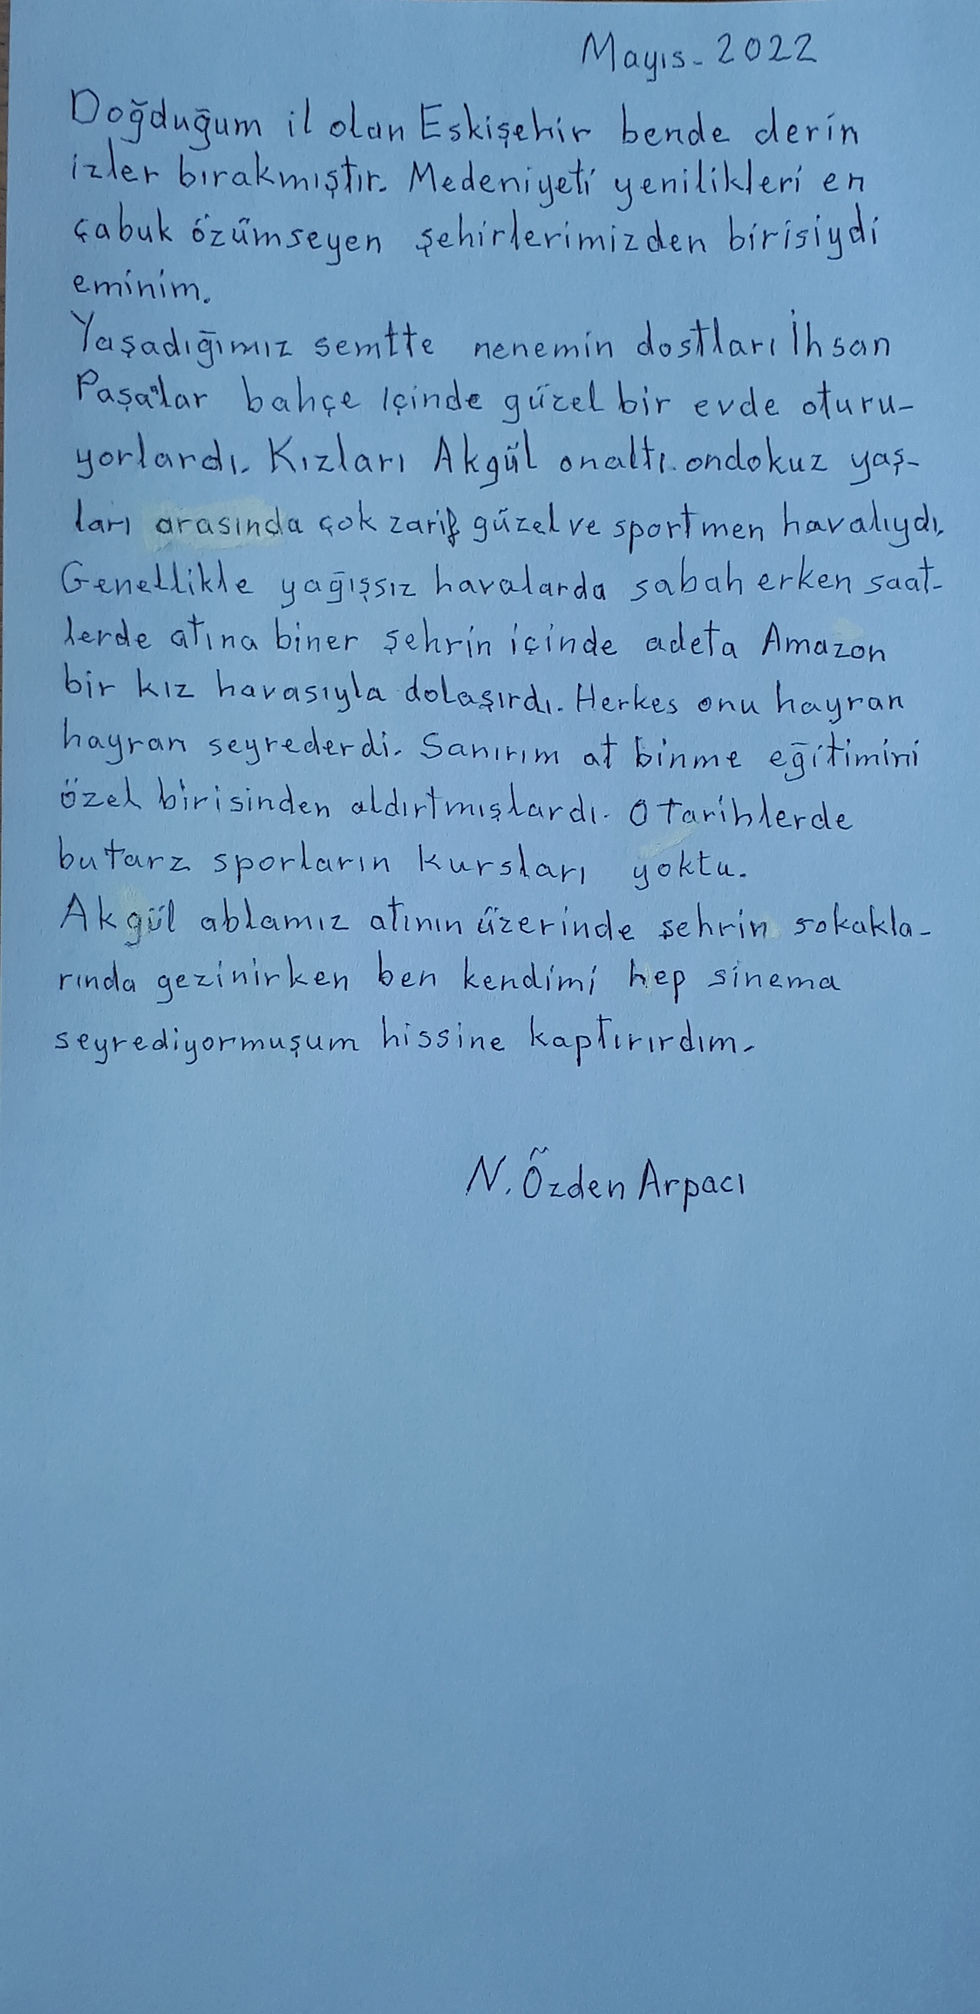 Mayıs-2022
Doğduğum il olan Eskişehir bende derin
izler bırakmıştır. Medeniyeti yenilikleri en
çabuk özümseyen şehirlerimizden birisiydi
eminim.
Yaşadığımız semtte nenemin dostları İhsan
Paşa'lar bahçe içinde güzel bir evde oturu-
yorlardı. Kızları Akgül onaltı. ondokuz yaş-
ları arasında çok zarif güzel ve sportmen havalıydı.
Genellikle yağışsız havalarda sabah erken saat-
lerde atına biner şehrin içinde adeta Amazon
bir kız havasıyla dolaşırdı. Herkes onu hayran
hayran seyrederdi. Sanırım at binme eğitimini
özel birisinden aldırtmışlardı. O tarihlerde
butarz sporların kursları yoktu.
Akgül ablamız atının üzerinde şehrin sokakla-
rında gezinirken ben kendimi hep sinema
seyrediyormuşum hissine kaptırırdım.
N. Özden Arpacı